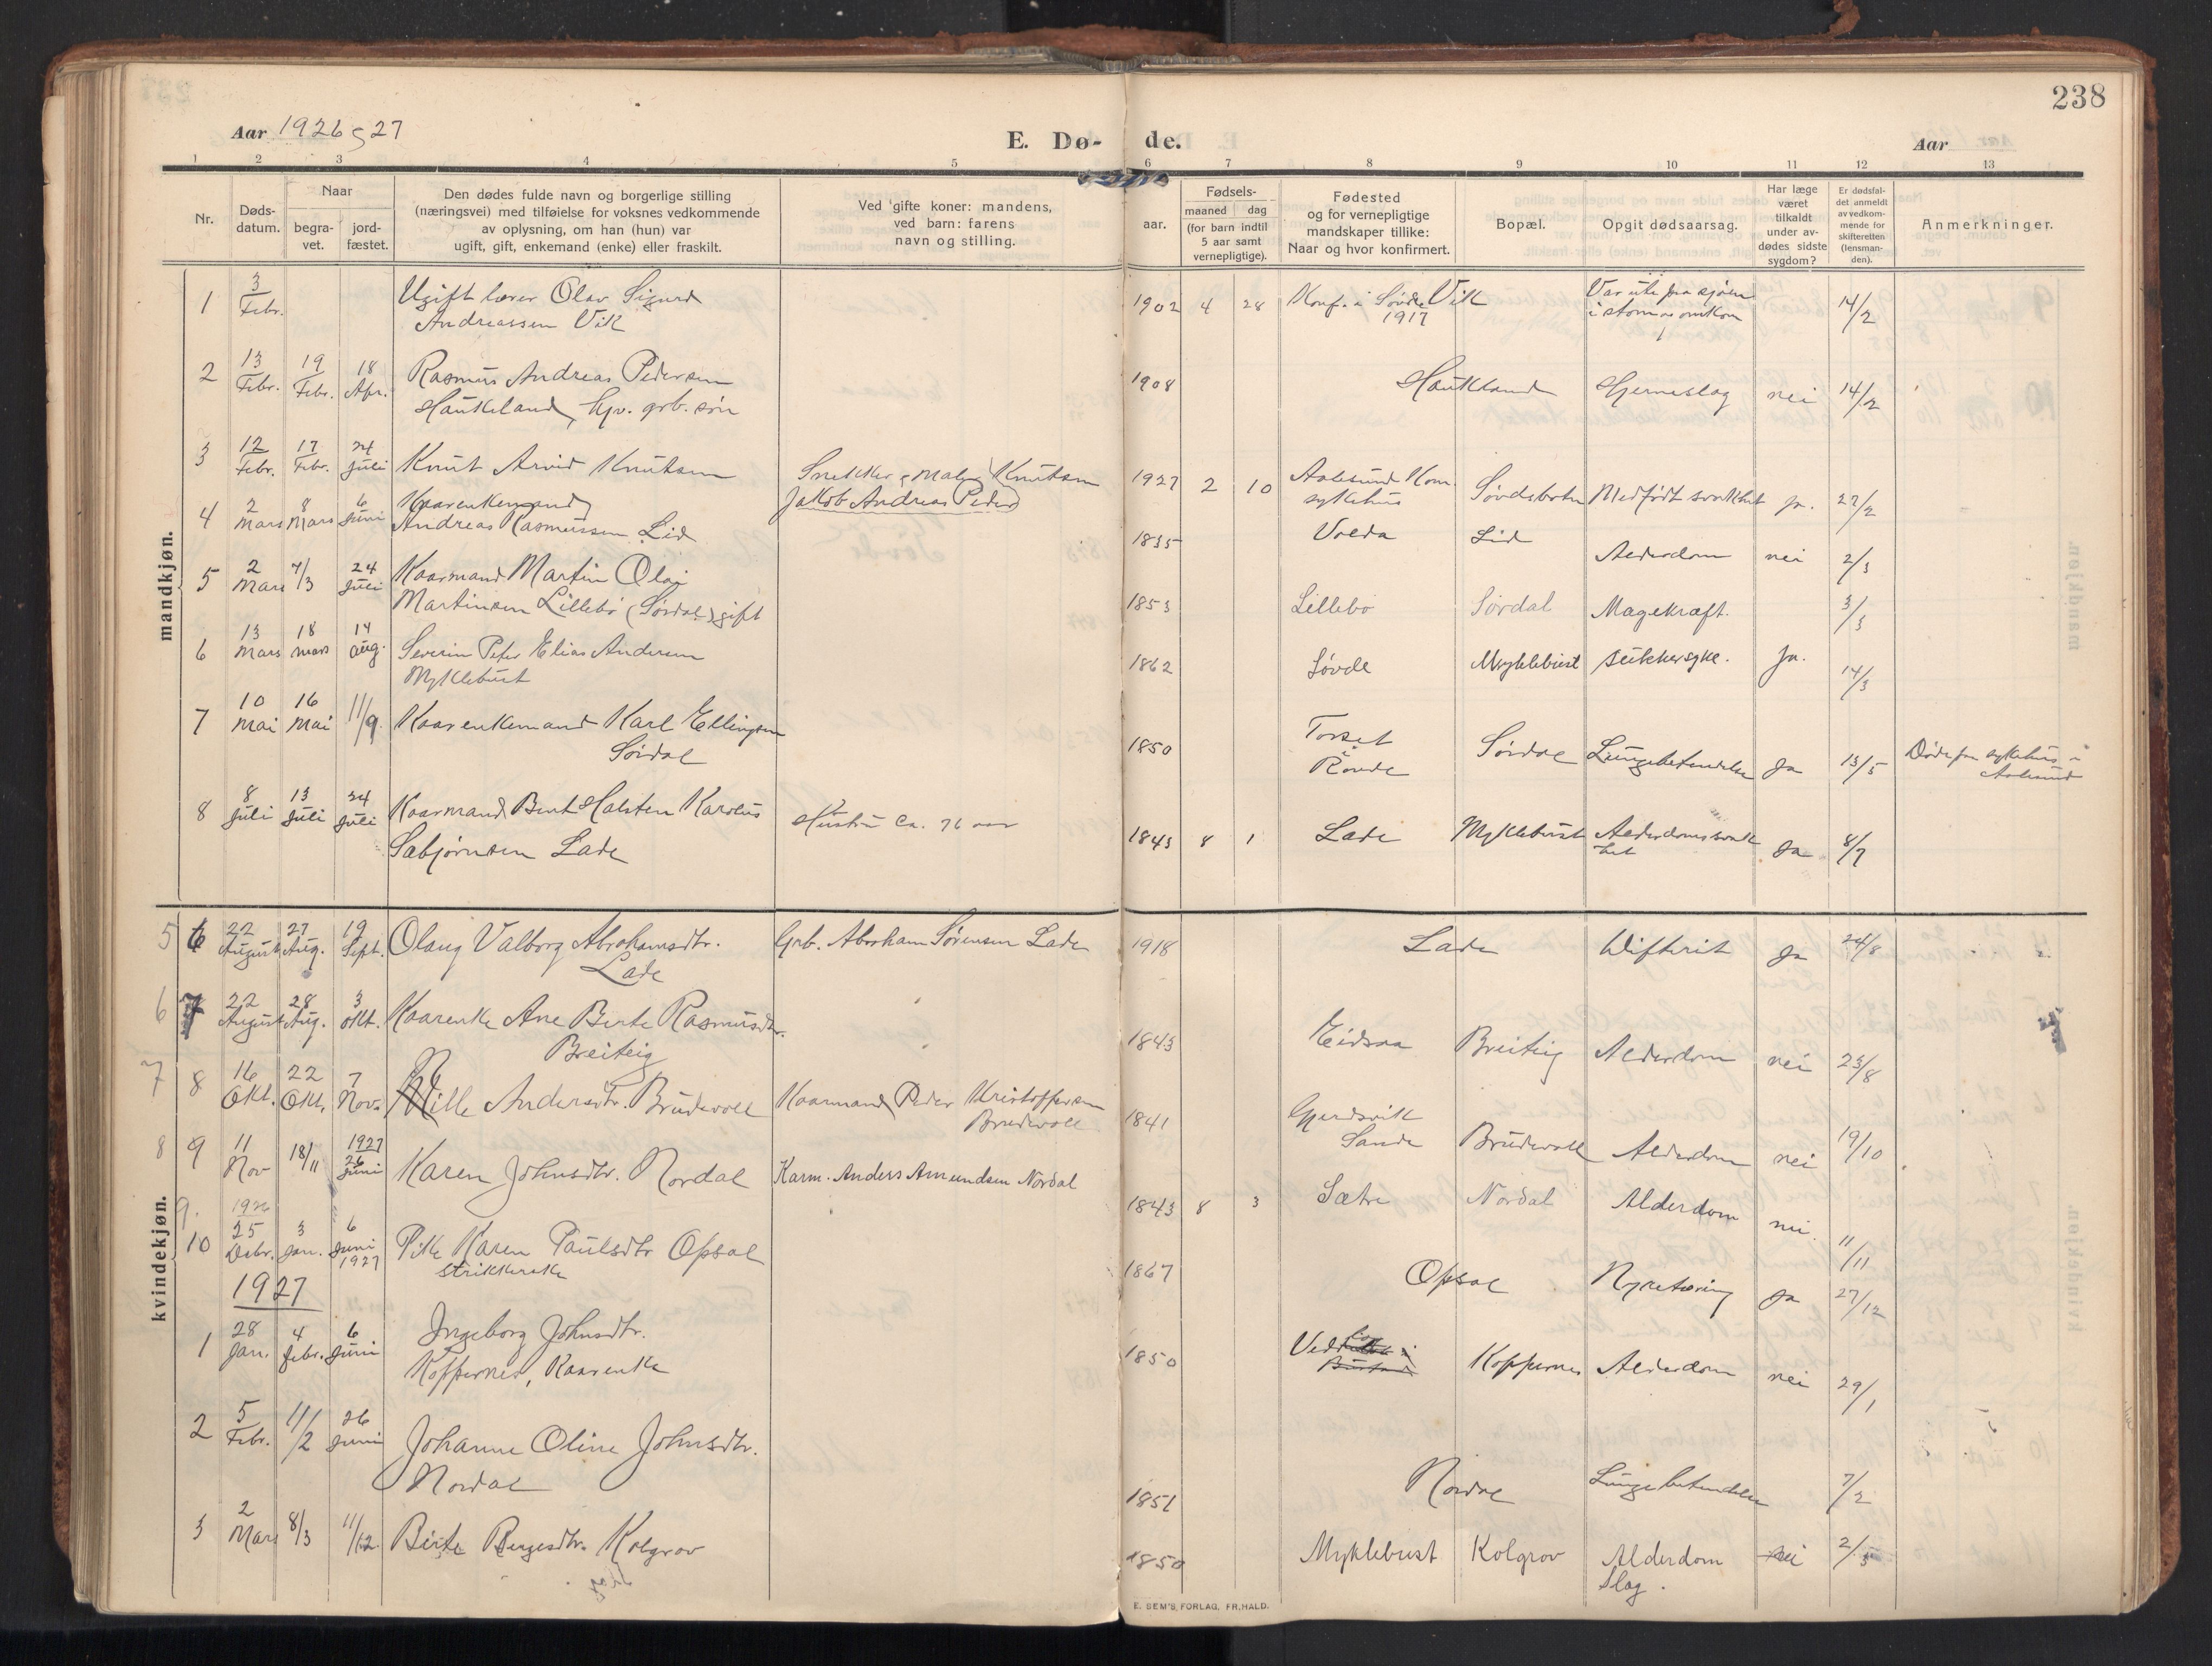 238
Aar 1926 og 27
E. Dø- de.
Aar
1 2 3 4 5 6 7 8 9 10 11 12 13
Nr.
Døds-
datum.
Naar
begra-
vet.
jord-
fæstet.
Den dødes fulde navn og borgerlige stilling
(næringsvei) med tilføielse for voksnes vedkommende
av oplysning, om han (hun) var
ugift, gift, enkemand (enke) eller fraskilt.
Ved gifte koner: mandens,
ved barn: farens
navn og stilling.
aar.
Fødsels-
maaned dag
(for barn indtil
5 aar samt
vernepligtige).
Fødested
og for vernepligtige
mandskaper tillike:
Naar og hvor konfirmert.
Bopæl.
Opgit dødsaarsag.
Har læge
været
tilkaldt
under av-
dødes sidste
sygdom?
Er dødsfal-
det anmeldt
av vedkom-
mende for
skifteretten
(lensman-
den).
Anmerkninger.
mandkjøn.
1 3 Febr. Ugift lærer Olav Sigurd 1902 4 28 Konf. i Søvde Vik Var ute paa sjøen 14/2
Andreassen Vik 1917 i storm og omkom
2 13 Febr. 19 Febr. 18 Apr. Rasmus Andreas Pedersen 1908 Haukeland Hjerneslag nei 14/2
Haukeland, hjv. grb. søn
3 12 Febr. 17 Febr. 24 Juli Knut Arvid Knutsen Snekker og Maler Knutsen 1927 2 10 Aalesund Kom. Søvdebotn Medfødt svakhet ja. 22/2
Jakob Andreas Peder sykehus
4 2 Mars 8 Mars 6 Juni Kaarenkemand
Andreas Rasmussen Lid 1835 Volda Lid Alderdom nei 2/3
5 2 Mars 7/3 24 Juli Kaarmand Martin Olai
Martinsen Lillebø (Sørdal) gift 1853 Lillebø Sørdal Magekræft. 3/3
6 13 Mars 18 Mars 14 Aug. Severin Peter Elias Andersen 1862 Søvde Myklebust Sukkersyke. Ja. 14/3
Myklebust
7 10 Mai 16 Mai 11/9. Kaarenkemand Karl Ellingsen 1850 Torset i Sørdal Lungebetendelse Ja 13/5 Døde paa sykehus i
Sørdal Rovde Aalesund
8 8 Juli 13 Juli 24 Juli Kaarmand Bent Halsten Karolus Hustru ca. 76 aar 1843 8 1 Lade Myklebust Alderdomssvak- Ja 8/7
Sæbjørnsen Lade het
kvindekjøn.
5 6 22 August 27 Aug. 19 Sept. Olaug Valborg Abrahamsdtr. Grb. Abraham Sørensen Lade 1918 Lade Difterit Ja 24/8
Lade
6 7 22 August 28 Aug. 3 Okt. Kaarenke Ane Berte Rasmusdtr. 1843 Eidsaa Breiteig Alderdom nei 23/8
Breiteig
7 8 16 Okt. 22 Okt. 7 Nov. Nille Andersdtr. Brudevoll Kaarmand Peder Kristoffersen 1841 Gjerdsvik Brudevoll Alderdom nei 19/10
Brudevoll Sande
8 9 11 Nov 18/11 1927 26 Juni Karen Johnsdtr. Nordal Karm. Anders Amundsen Nordal 1843 8 3 Sætre Nordal Alderdom nei. 11/11
9. 10 1926 25 Debr. 3 Jan. 6 Juni 1927 Pike Karen Paulsdtr Opsal 1867 Opsal Nyretæring Ja 27/12
strikkerske
1927
1 28 Jan. 4 Febr. 6 Juni Ingeborg Johnsdtr. 1850 Koppernes Alderdom nei 29/1
Koppernes, Kaarenke
2 5 Febr. 11/2 26 Juni Johanne Oline Johnsdtr. 1851 Nordal Lungebetendelse 7/2
Nordal
3 2 Mars 8/3 11/12. Birte Bergesdtr. Kolgrov 1850 Myklebust Kolgrov Alderdom nei 2/3
Slag.
E. SEM'S FORLAG, FR.HALD.